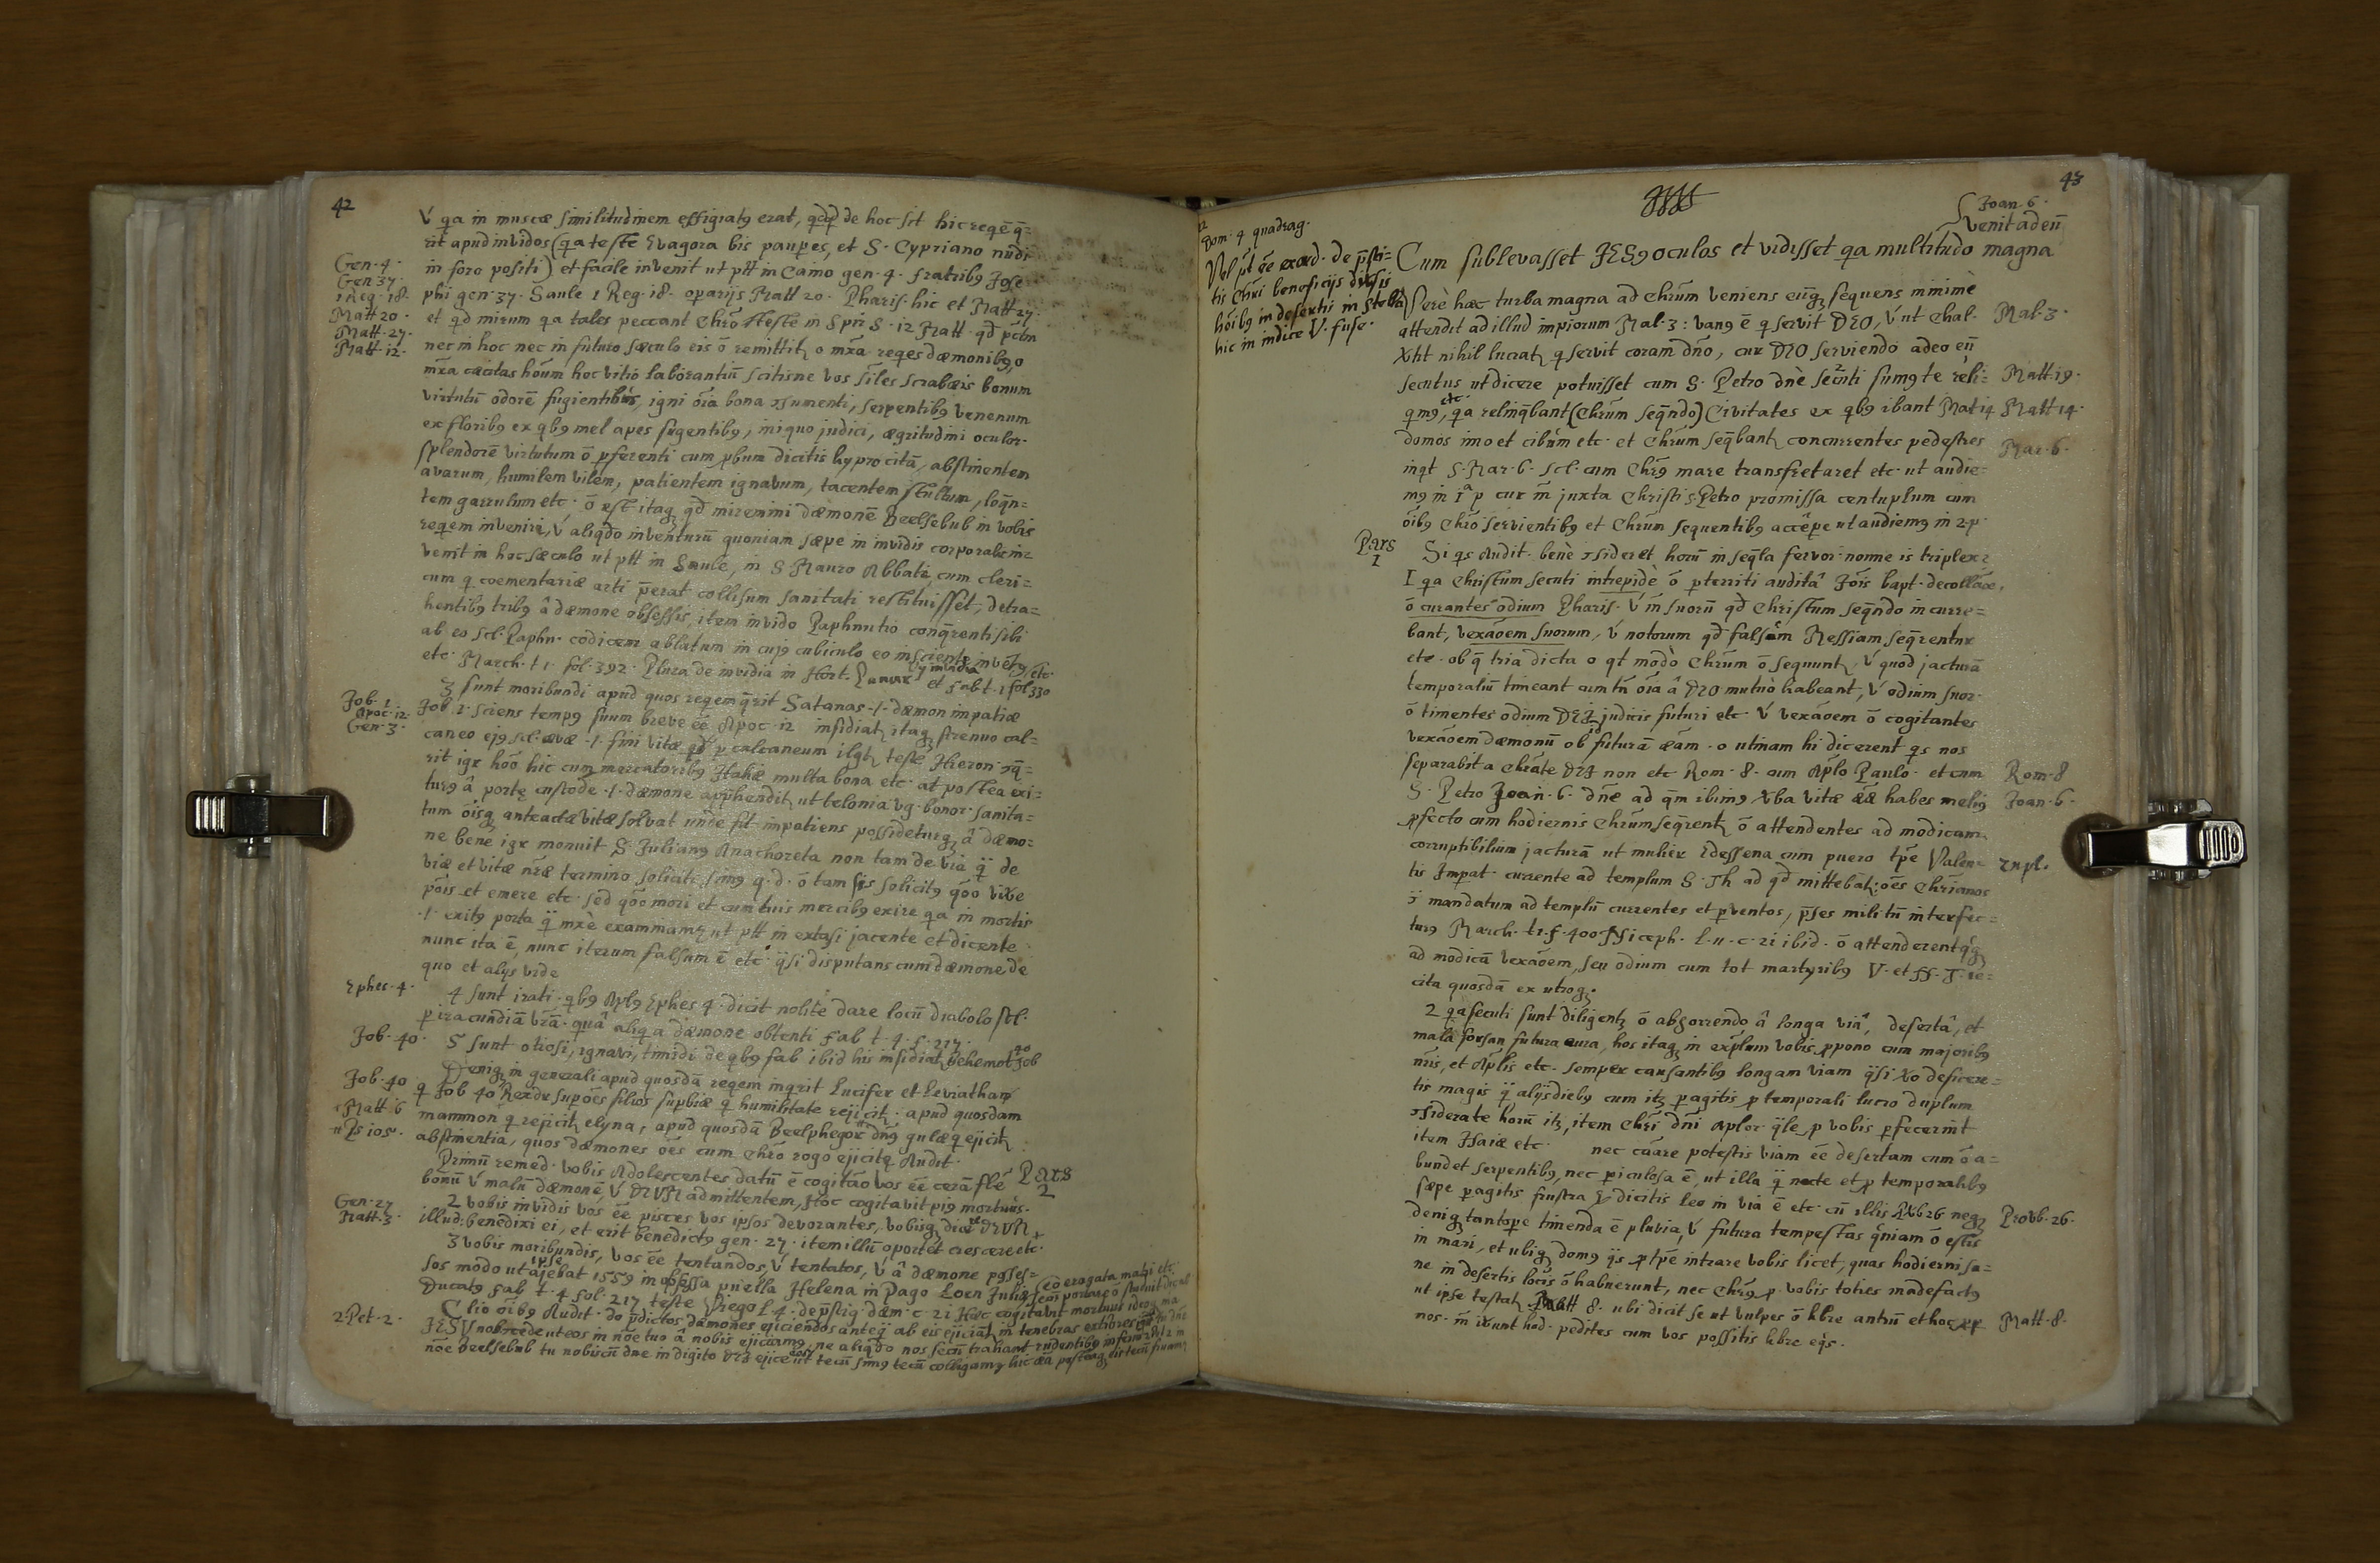 42
V̓ qa in muscæ similitudinem effigiatꝯ erat, qdqd de hoc sit hic reqẽ q̃-
rit apud invidos (qa teste Evagora bis paupes, et S. Cypriano nudi
Gen. 4.
Gen 37.
1 Reg. 18.
Matt 20.
Matt. 27.
Matt. 12.
in foro positi) et facile invenit ut ptt in Caino gen. 4. fratribꝯ Jose-
phi gen. 37. Saule 1 Reg. 18. oparijs Matt 20. Pharis. hic et Matt 27.
et qd mirum qa tales peccant Chrõ teste in Spm S. 12 Matt. qd pctm
nec in hoc nec in futuro sæculo eis õ remittitꝫ o mrã reqes dæmonibꝯ, o
mrã cæcitas hoũm hoc vitio laborantiũ scitisne vos siles scrabæis bonum
virtutũ odorẽ fugientibus, igni oĩa bona ꝯsumenti, serpentibꝯ venenum
ex floribꝯ ex qbꝯ mel apes sugentibꝯ, iniquo judici, ægritudini oculor.
splendorẽ virtutum õ pferenti cum pbum dicitis hypocritã, abstinentem
avarum, humilem vilem, patientem ignavum, tacentem stultum, loqñ-
tem garrulum etc. õ est itaqꝫ qd miremini dæmonẽ Beelsebub in vobis
reqem invenire, V̓ aliqdo inventurũ quoniam sæpe in invidis corporalr in-
venit in hoc sæculo ut ptt in Saule, in S Mauro Abbate, cum cleri-
cum q coementariæ arti p̃erat collisum sanitati restituisset, detra-
hentibꝯ tribꝯ â dæmone obsessis, item invido Paphnutio conq̃renti sibi
ab eo scl. Paphn. codicem ablatum in cujꝯ cubiculo eo insciente invẽtꝯ, etc.
etc. March. t 1. fol. 392. Plura de invidia in Hort. Pamar V̓ invidia et Fab t. 1 fol 330
3 sunt moribundi apud quos reqem q̃rit Satanas .1. dæmon impatiæ
Job. 1
Apoc. 12.
Gen. 3.
Job. 1. sciens tempꝯ suum breve ẽẽ Apoc. 12 insidiatꝫ itaqꝫ strenuo cal-
caneo ejꝯ scl. ævæ .1. fini vitæ qd p calcaneum illgtꝫ teste Hieron. ꝯq̃-
rit igr hõõ hic cum mercatoribꝯ Italiæ multa bona etc. at postea exi-
turꝯ â portę custode .1. dæmone app̃henditꝫ ut telonia vg. bonor. sanita-
tum õisqꝫ anteactæ vitæ solvat unde fit impatiens possideturqꝫ â dæmo-
ne bene igr monuit S Julianꝯ Anachoreta non tam de via q̃ de
viæ et vitæ nr̃æ termino soliciti simꝯ q. d. õ tam sis solicitꝯ qõo vive
põis et emere etc. sed qõo mori et cum tuis mercibꝯ exire qa in mortis
.1. exitꝯ porta q̃ mxè examinamꝫ ut ptt in extasi jacente et dicente
nunc ita ẽ, nunc iterum falsum ẽ etc. q̃si disputans cum dæmone de
quo et alijs vide
Ephes. 4.
4 sunt irati. qbꝯ Aplꝯ Ephes 4. dicit nolite dare locũ diabolo scl.
p iracundiã vrã. quâ aliqa dæmone obtenti Fab t. 4. f. 217.
Job. 40.
5 sunt otiosi, ignavi, timidi de qbꝯ Fab ibid his insidiatꝫ Behemot Job 40
Denigꝫ in generali apud quosdã reqem inqrit Lucifer et Leviathan
Job. 40
Matt 6
Ps 105.
q Job 40 Rex dr sup oẽs filios supbiæ q humilitate rejicitꝫ. apud quosdam
mammon q rejicitꝫ elyna, apud quosdã Beelphegor dnꝯ gulæ q ejicitꝫ
abstinentia, quos dæmones oẽs cum Chrõ rogo ejicite Audit.
Primũ remed. vobis Adolescentes datũ ẽ cogitão vos ẽẽ cerã flẽ Pars 2
bonũ V̓ malũ dæmonẽ, V̓ DEUM admittentem, Hoc cogitavit piꝯ mortuus.
Gen. 27
Matt. 3.
2 vobis invidis vos ẽẽ pisces vos ipsos devorantes, vobisqꝫ dice DEUM
illud. benedixi ei, et erit benedictꝯ gen. 27. item illũ oportet crescere etc.
3 vobis moribundis, vos ẽẽ tentandos, V̓ tentatos, V̓ â dæmone posses-
sos modo ut ajebat ipse 1559 in obsessa puella Helena in Pago Loen Juliæ
Ducatꝯ Fab t. 4 fol. 217 teste Viego l. 4. de p̃stig. dæm. c. 21 Hæc cogitavit mortuus ideoqꝫ
2 Pet. 2.
Clio õibꝯ Audit. do p̃dictos dæmones ejiciendos anteq̃ ab eis ejiciatꝫ in tenebras exteriores
JESV nobꝯ cede ut eos in nõe tuo â nobis ejiciamꝯ, ne aliqdo nos secũ trahant rudentibꝯ inferni
nõe Beelsebub tu nobiscũ dne in digito DEI ejice eos ut tecũ simꝯ tecũ colligamꝫ
43
Dom. 4 quadrag.
Vel pt ẽẽ exord. de p̃sti-
tis Chri beneficijs divsis
hõibꝯ in desertis in Stella
hic in indice V. fuse.
Joan. 6.
venit ad eũ
Cum sublevasset JESꝯ oculos et vidisset qa multitudo magna
Serè hæc turba magna ad Chrũm veniens eũqꝫ sequens minimè
attendit ad illud impiorum Mal. 3: vanꝯ ẽ q servit DEO, V̓ ut Chal. Mal. 3.
Xtit nihil lucratꝫ q servit coram dñõ, cur DEO serviendo adeo eũ
secutus ut dicere potuisset cum S. Petro dnè secuti sumꝯ te reli- Matt 19.
qmꝯ, etc. qa relinq̃bant (Chrũm seq̃ndo) Civitates ex qbꝯ ibant Mat 14 Matt 14.
domos imo et cibum etc. et Chrũm seq̃bantꝫ concurrentes pedestres
Mar. 6.
inqt S. Mar. 6. scl. cum Chrꝯ mare transfretaret etc. ut audie-
mꝯ in 1ª p cur m̃ juxta Christi S. Petro promissa centuplum cum
õibꝯ Chrõ servientibꝯ et Chrũm sequentibꝯ accêpe ut audiemꝯ in 2. p.
Pars 1
Si qs Audit. benè ꝯsideret horũ in seq̃la fervor. nonne is triplex?
I qa Christum secuti intrepidè õ pterriti auditâ Jõis bapt. decollãõe,
õ curantes odium Pharis. V̓ m̃ suorũ qd Christum seq̃ndo incurre-
bant, vexãoem suorum, V̓ notorum qd falsum Messiam seq̃rentur
etc. ob q̃ tria dicta o qt modò Chrũm õ sequuntꝫ, V̓ quod jacturã
temporaliũ timeant cum tñ oĩa â DEO mutuò habeant, V̓ odium suor.
õ timentes odium DEI judicis futuri etc. V̓ vexãoem õ cogitantes
vexãoem dæmonũ ob id futurã æãm. o utinam hi dicerent qs nos
separabit a Chrãte DEI non etc Rom. 8. cum Aplo Paulo. et cum Rom. 8
S. Petro Joan. 6. dñe ad q̃m ibimꝯ Xba vitæ ææ habes meliꝯ Joan. 6.
pfecto cum hodiernis Chrũm seq̃rentꝫ õ attendentes ad modicam
corruptibilium jacturã ut mulier Edessena cum puero tpẽ Valen- Expl.
tis Imperat. currente ad templum S. Th ad qd mittebatꝫ: oẽs Chrianos
ꝯ mandatum ad templũ currentes et p̃ventos, p̃ses militũ interfec-
turꝯ March. t 1. f. 400 Niceph. l. 11. c. 21 ibid. õ attenderentq̃qꝫ
ad modicã vexãoem, seu odium cum tot martyribꝯ V. et N. T. re-
cita quosdã ex utroqꝫ.
2 qa secuti sunt diligentꝫ õ abhorrendo â longa viâ, desertâ, et
malâ forsan futura aura, hos itaqꝫ in explum vobis ppono cum majoribꝯ
nr̃is, et Aplis etc. semper causantibꝯ longam viam q̃si Xo deficere-
tis magis q̃ alijs diebꝯ cum itꝫ pagitis p temporali lucro duplum
ꝯsiderate horũ itꝫ, item Chri dñi Aplor. q̃le p vobis pfecerint
item Isaiæ etc. nec cãare potestis viam ẽẽ desertam cum õ a-
bundet serpentibꝯ, nec piculosa ẽ, ut illa q̃ nocte et p temporalibꝯ
sæpe pagitis frustra ꝯ dicitis leo in via ẽ etc. cũ illis PXb 26 neqꝫ Provb. 26.
deniqꝫ tantope timenda ẽ pluvia, V̓ futura tempestas q̃niam õ estis
in mari, et ubiqꝫ domꝯ q̃s p tpẽ intrare vobis licet, quas hodierni sa-
ne in desertis locis õ habuerunt, nec Chrꝯ p vobis toties madefactꝯ
ut ipse testatꝫ Matt 8. ubi dicit se ut vulpes õ hbre antrũ et hoc Matt. 8.
nos. m̃ ibunt hod. pedites cum vos possitis hbre eqs.